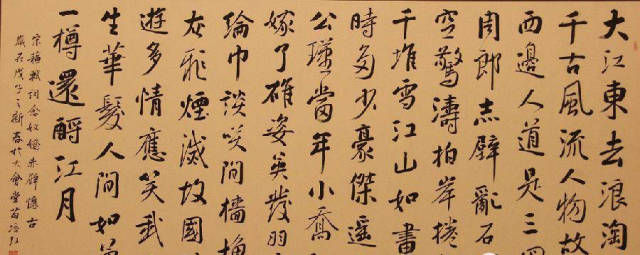 大江東去浪淘
千古風流人物故
西邊人道是三國
周郎赤壁亂石
空驚濤拍岸捲
千堆雪江山如畫
時多少豪傑遥
公瑾當年小喬
嫁了雄姿英發羽
綸巾談咲間檣櫓
灰飛煙滅故國
遊多情應笑我
生華髮人間如夢
一樽還酹江月
宋蘇軾詞念奴嬌赤壁懷古
歲在戊子之新春於大會堂